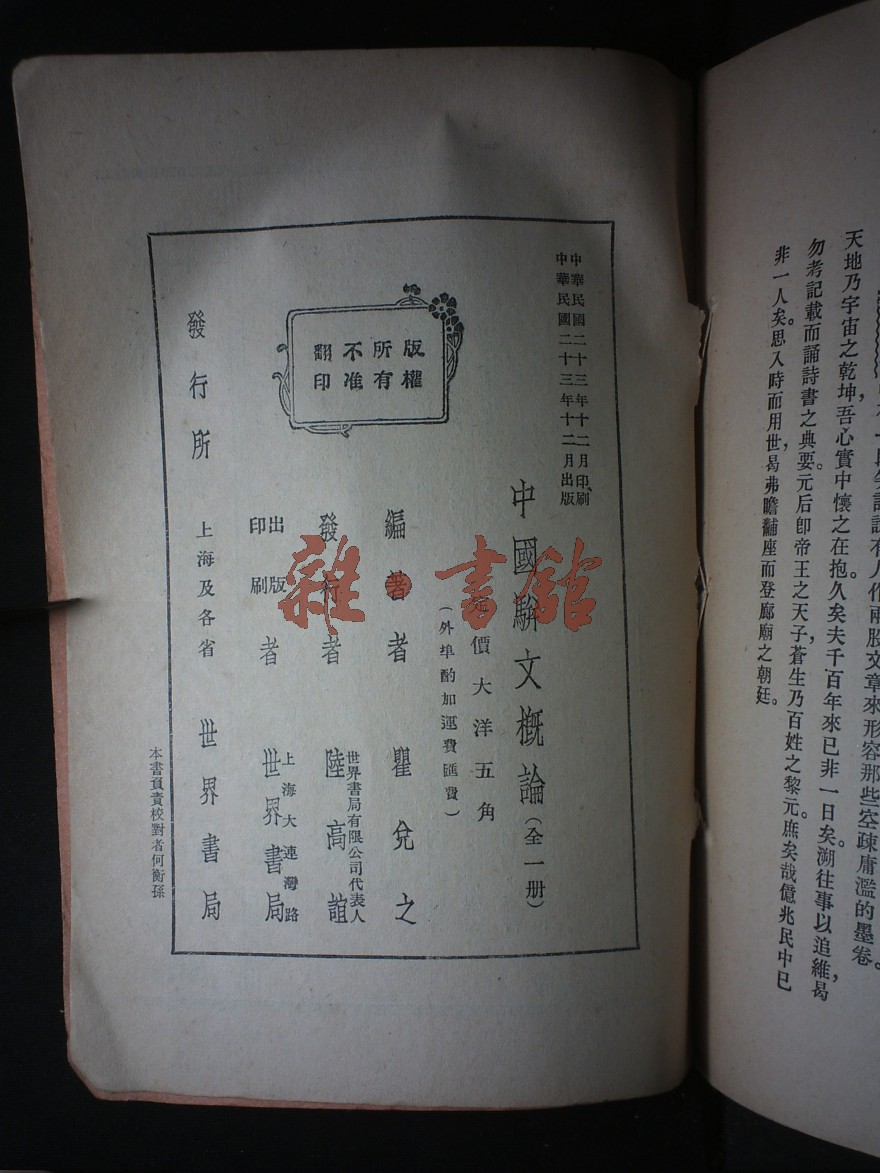 天地乃宇宙之乾坤，吾心實中懷之在抱。久矣夫千百年來已非一日矣，溯往事以追維，曷
勿考記載而誦詩書之典要。元后卽帝王之天子，蒼生乃百姓之黎元。庶矣哉億兆民中已
非一人矣。思入時而用世，曷弗瞻黼座而登廊廟之朝廷。
中華民國二十三年十二月印刷
中華民國二十三年十二月出版
中國駢文概論（全一册）
定價大洋五角
（外埠酌加運費匯費）
編著者 瞿兌之
發行者 世界書局有限公司代表人 陸高誼
出版
印刷
者 上海大連灣路 世界書局
發行所 上海及各省 世界書局
版權
所有
不准
翻印
本書負責校對者何衡孫
雜書館